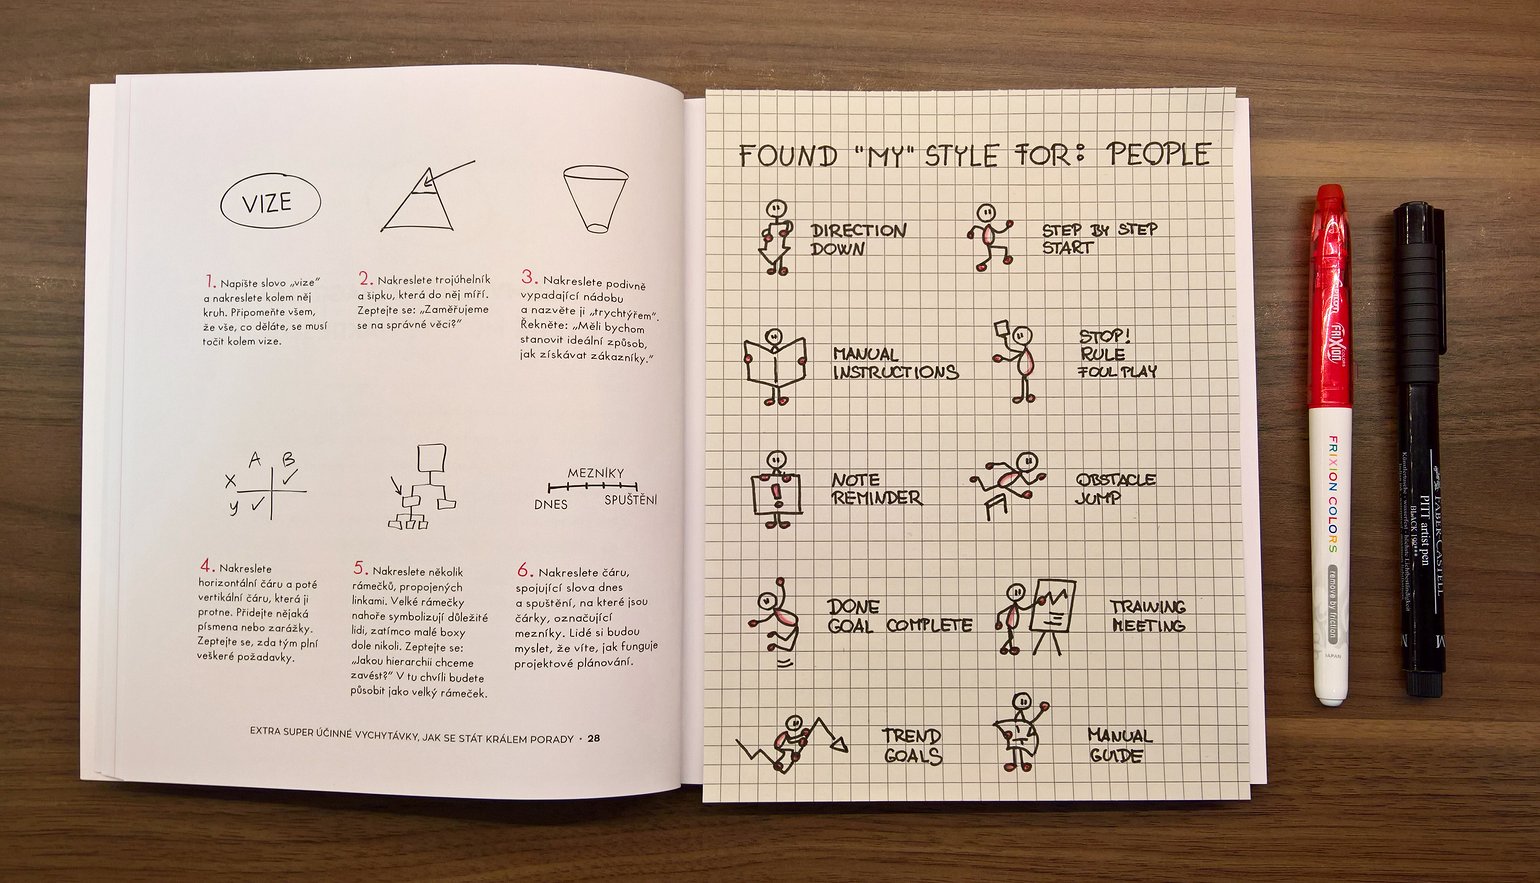 VIZE
1. Napište slovo „vize“
a nakreslete kolem něj
kruh. Připomeňte všem,
že vše, co děláte, se musí
točit kolem vize.
2. Nakreslete trojúhelník
a šipku, která do něj míří.
Zeptejte se: „Zaměřujeme
se na správné věci?“
3. Nakreslete podivně
vypadající nádobu
a nazvěte ji „trychtýřem“.
Řekněte: „Měli bychom
stanovit ideální způsob,
jak získávat zákazníky.“
A B
X
y
MEZNÍKY
DNES
SPUŠTĚNÍ
4. Nakreslete
horizontální čáru a poté
vertikální čáru, která ji
protne. Přidejte nějaká
písmena nebo zarážky.
Zeptejte se, zda tým plní
veškeré požadavky.
5. Nakreslete několik
rámečků, propojených
linkami. Velké rámečky
nahoře symbolizují důležité
lidi, zatímco malé boxy
dole nikoli. Zeptejte se:
„Jakou hierarchii chceme
zavést?“ V tu chvíli budete
působit jako velký rámeček.
6. Nakreslete čáru,
spojující slova dnes
a spuštění, na které jsou
čárky, označující
mezníky. Lidé si budou
myslet, že víte, jak funguje
projektové plánování.
EXTRA SUPER ÚČINNÉ VYCHYTÁVKY, JAK SE STÁT KRÁLEM PORADY • 28
FOUND "MY" STYLE FOR: PEOPLE
DIRECTION
DOWN
STEP BY STEP
START
MANUAL
INSTRUCTIONS
STOP!
RULE
FOUL PLAY
!
NOTE
REMINDER
OBSTACLE
JUMP
DONE
GOAL COMPLETE
TRAINING
MEETING
TREND
GOALS
MANUAL
GUIDE
FRIXION
FRIXION COLORS
remove by friction
JAPAN
FABER-CASTELL
PITT artist pen
BLACK 199***
M